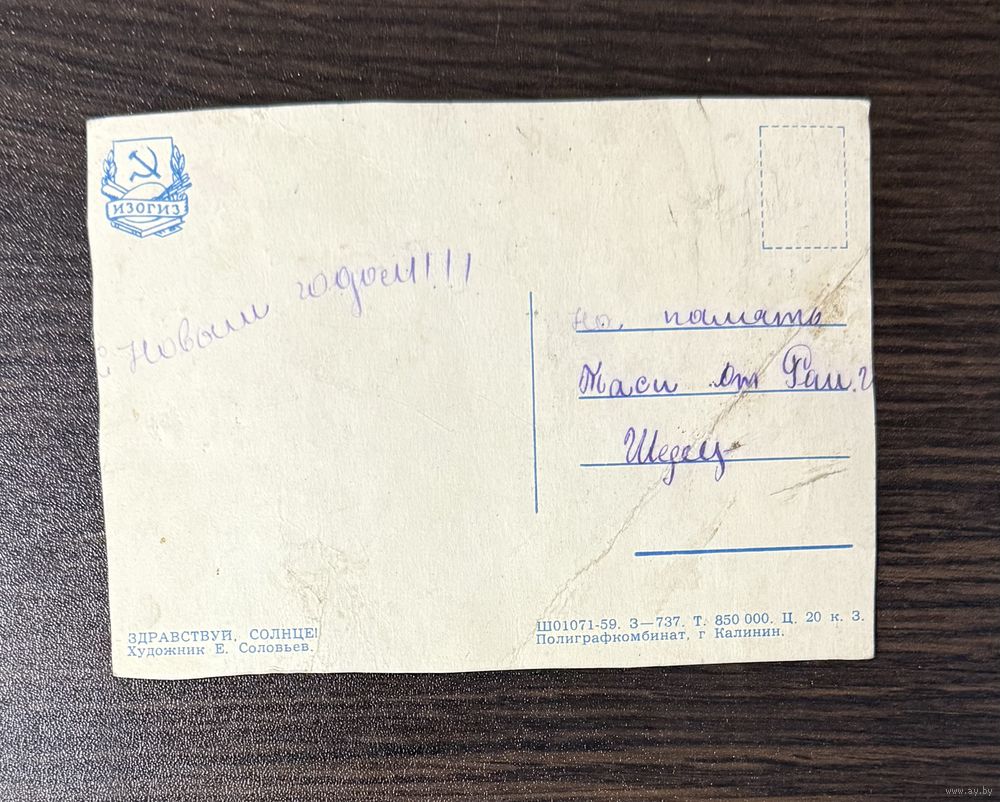 ИЗОГИЗ
С Новым годом!!!!
На память
Таси от Раи. Г
Шедец
ЗДРАВСТВУЙ, СОЛНЦЕ!
Художник Е. Соловьев.
Ш01071-59. З—737. Т. 850 000. Ц. 20 к. З.
Полиграфкомбинат, г Калинин.
www.ay.by